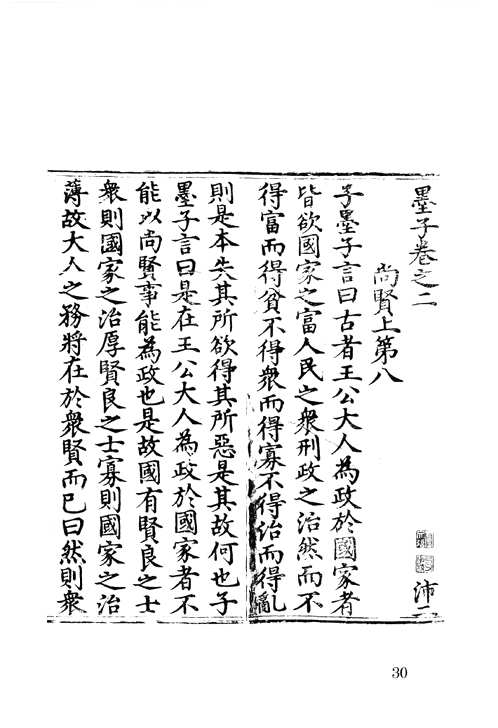 墨子卷之二
沛二
尚賢上第八
子墨子言曰古者王公大人為政於國家者
皆欲國家之富人民之衆刑政之治然而不
得富而得貧不得衆而得寡不得治而得亂
則是本失其所欲得其所惡是其故何也子
墨子言曰是在王公大人為政於國家者不
能以尚賢事能為政也是故國有賢良之士
衆則國家之治厚賢良之士寡則國家之治
薄故大人之務將在於衆賢而已曰然則衆
30